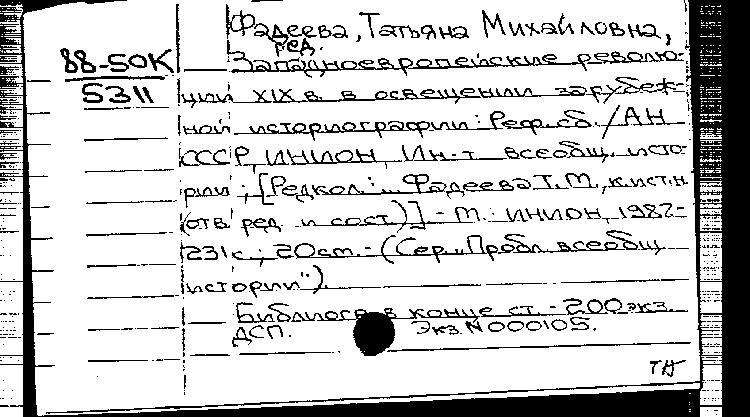 Фадеева, Татьяна Михайловна,
ред.
88-50К
5311
Западноевропейские револю-
ции XIX в. в освещении зарубеж-
ной историографии: Реф. сб. / АН
СССР, ИНИОН, Ин-т всеобщ. исто-
рии; [Редкол.: ... Фадеева Т.М., к.ист.н.
(отв. ред. и сост.)] - М.: ИНИОН, 1987-
231 с.; 20 см. - (Сер. "Пробл. всеобщ.
истории").
Библиогр. в конце ст. - 200 экз.
ДСП. Экз. N 000105.